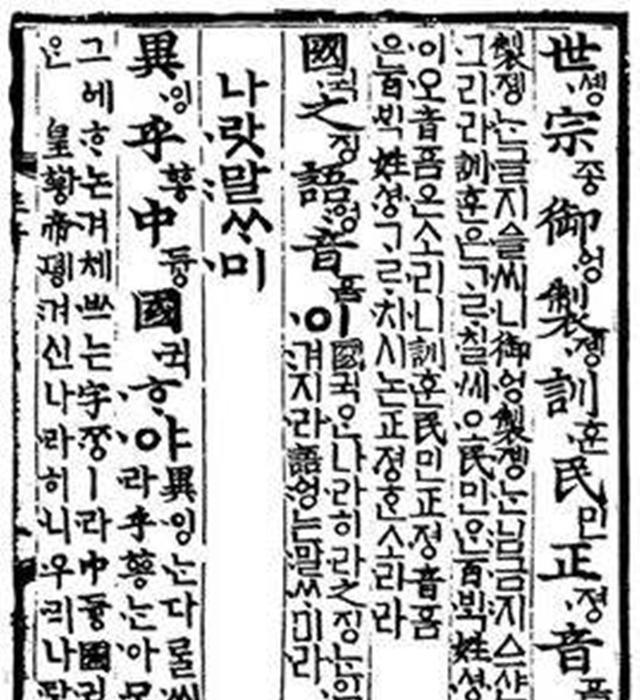 世솅宗종御엉製졩訓훈民민正졍音
製졩는글지ᅀᅳᆯ씨니御엉製졩는님금지ᅀᅳ샨
그리라訓훈은ᄀᆞᄅᆞ칠씨오民민ᄋᆞᆫ百ᄇᆡᆨ姓셩
이오音ᅙᅳᆷ은소리니訓훈民민正졍音ᅙᅳᆷ
은百ᄇᆡᆨ姓셩ᄀᆞᄅᆞ치시논正졍ᄒᆞᆫ소리라
國귁之징語엉音ᅙᅳᆷ이
國귁ᄋᆞᆫ나라히라之징ᄂᆞᆫ
겨지라語엉는말ᄊᆞ미라
나랏말ᄊᆞ미
異잉乎ᅘᅩᆼ中듀ᇰ國귁ᄒᆞ야
異잉ᄂᆞᆫ다ᄅᆞᆯ씨
라乎ᅘᅩᆼᄂᆞᆫ아모
그ᅌᅦᄒᆞ논겨체ᄡᅳ는字ᄍᆞᆼㅣ라中듀ᇰ國귁
ᄋᆞᆫ皇ᅘᅪᇰ帝뎽겨신나라히니우리나랏